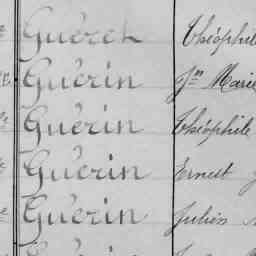 Guérch Théophile
Guérin Jn Marie
Guérin Théophile
Guérin Ernest J
Guérin Julien
Guérin